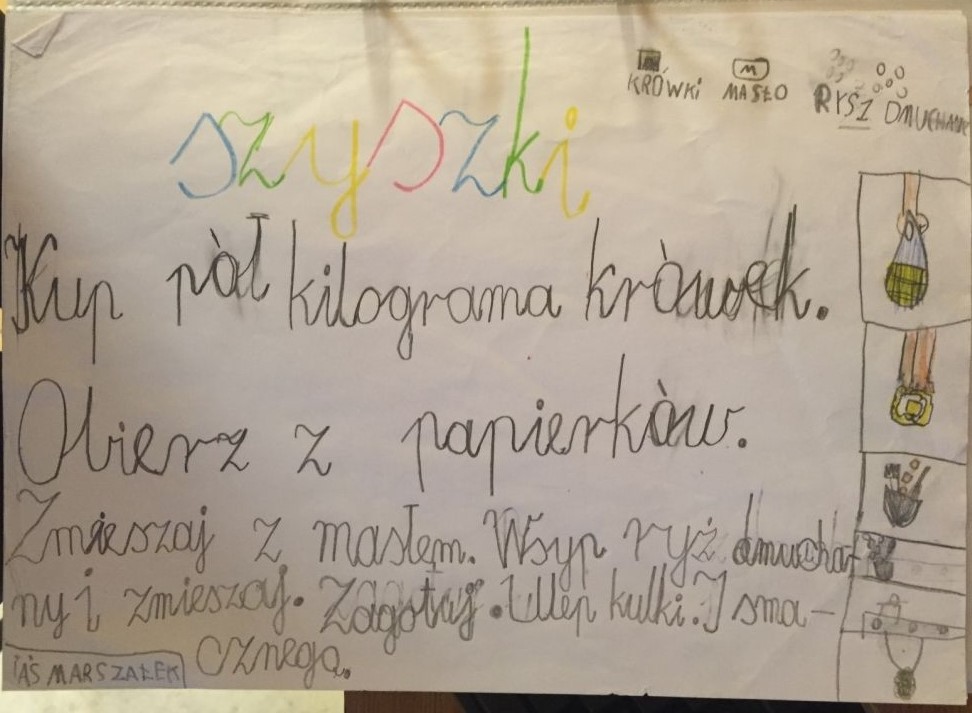 KRÓWKi MASŁO RYSZ DMUCHANY
M
szyszki
Kup pòł kilograma kròwek.
Obierz z papierkòw.
Zmieszaj z masłem. Wsyp ryż dmucha-
ny i zmieszaj. Zagotuj. Ulep kulki. I sma-
cznego.
JAŚ MARSZAŁEK